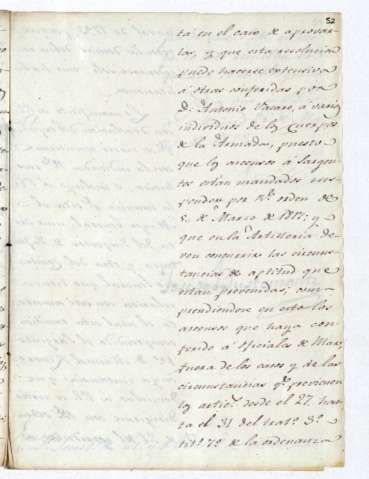 52
ta en el caso de aprovar-
las, y que esta resolucion
puede hacerse extensiva
á otras conferidas por
D. Antonio Vacaro, á varios
individuos de los Cuerpos
de la Armada, puesto
que los ascensos á Sargen-
tos estan mandados sus-
pender por Rl. orden de
8. de Marzo de 1817; y
que en la Artilleria de-
ven concurrir las circuns-
tancias de aptitud que
estan prevenidas; com-
prendiendose en esto los
ascensos que haya con-
ferido á oficiales de Mar,
fuera de los casos y de las
circunstancias qe. previenen
los artics. desde el 27 has-
ta el 31 del trato. 3º
tit.º 7º de la ordenanza